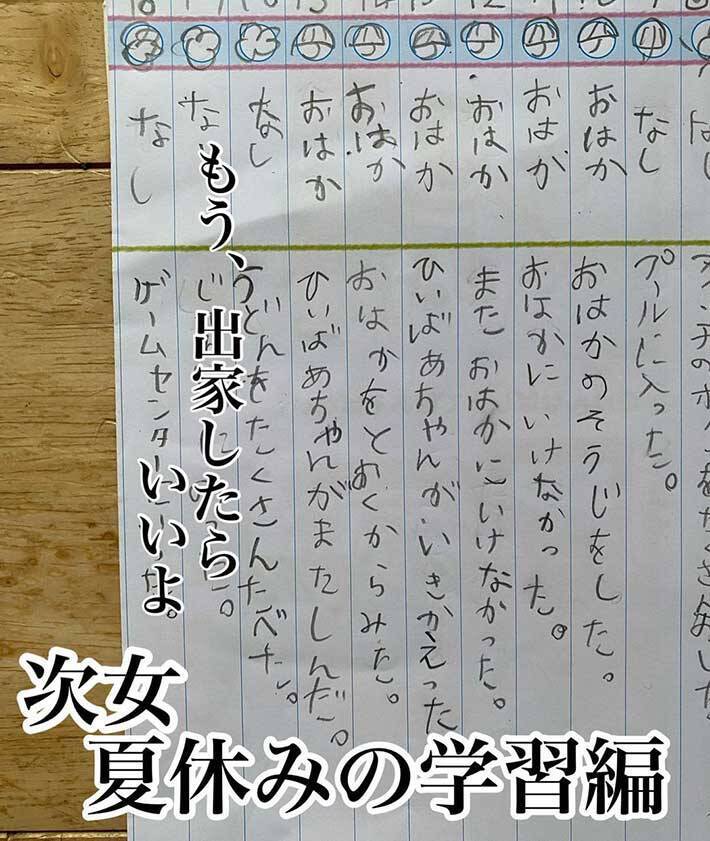 なし
プールに入った。
おはか
おはかのそうじをした。
おはか
おはかにいけなかった。
おはか
またおはかにいけなかった。
おはか
ひいばあちゃんがいきかえった
おはか
おはかをとおくからみた。
おはか
ひいばあちゃんがまたしんだ。
なし
うどんをたくさんたべた。
なし
ゲームセンター
もう、出家したら
いいよ。
次女
夏休みの学習編